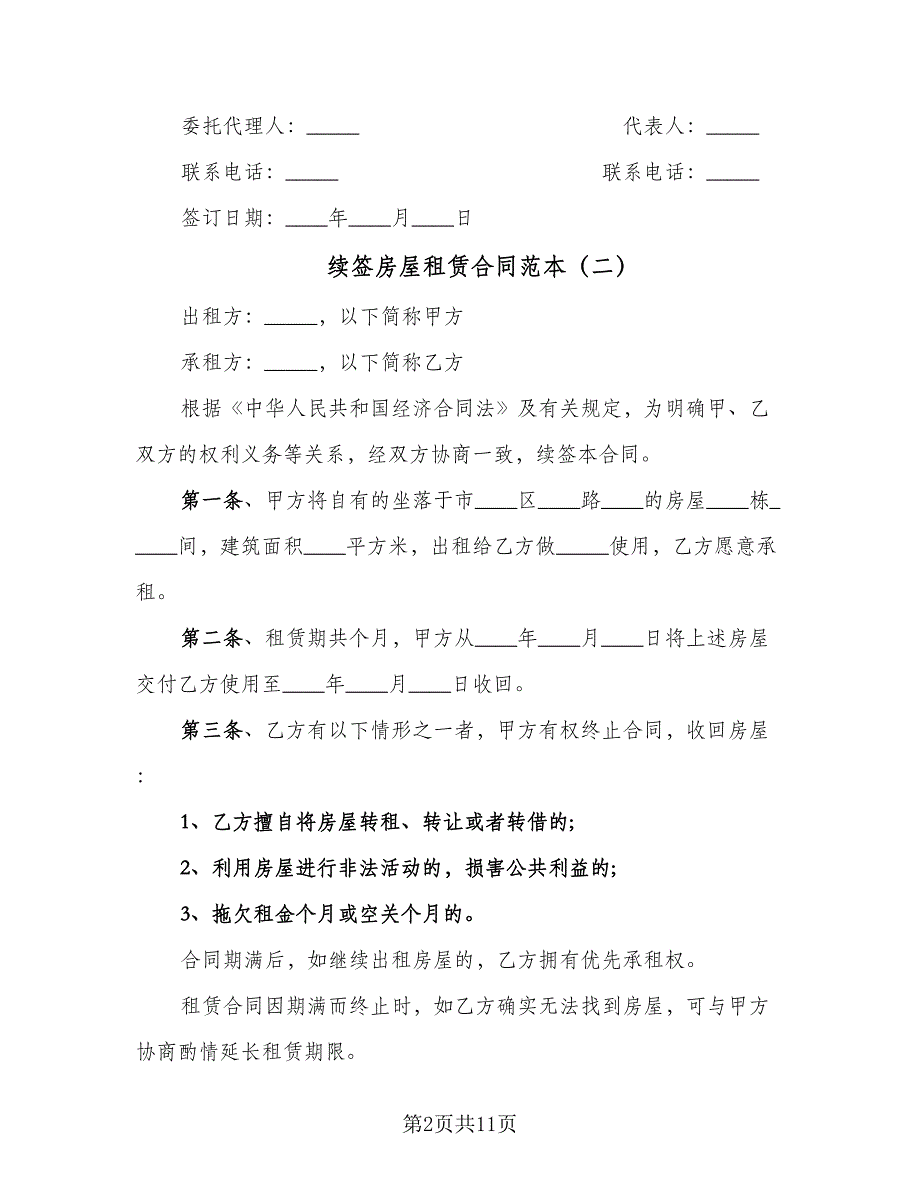 委托代理人：_____ 代表人：_____
联系电话：_____ 联系电话：_____
签订日期：____年____月____日
续签房屋租赁合同范本（二）
出租方：_____，以下简称甲方
承租方：_____，以下简称乙方
根据《中华人民共和国经济合同法》及有关规定，为明确甲、乙
双方的权利义务等关系，经双方协商一致，续签本合同。
第一条、甲方将自有的坐落于市____区____路____的房屋____栋_
____间，建筑面积____平方米，出租给乙方做_____使用，乙方愿意承
租。
第二条、租赁期共个月，甲方从____年____月____日将上述房屋
交付乙方使用至____年____月____日收回。
第三条、乙方有以下情形之一者，甲方有权终止合同，收回房屋
：
1、乙方擅自将房屋转租、转让或者转借的;
2、利用房屋进行非法活动的，损害公共利益的;
3、拖欠租金个月或空关个月的。
合同期满后，如继续出租房屋的，乙方拥有优先承租权。
租赁合同因期满而终止时，如乙方确实无法找到房屋，可与甲方
协商酌情延长租赁期限。
第2页共11页